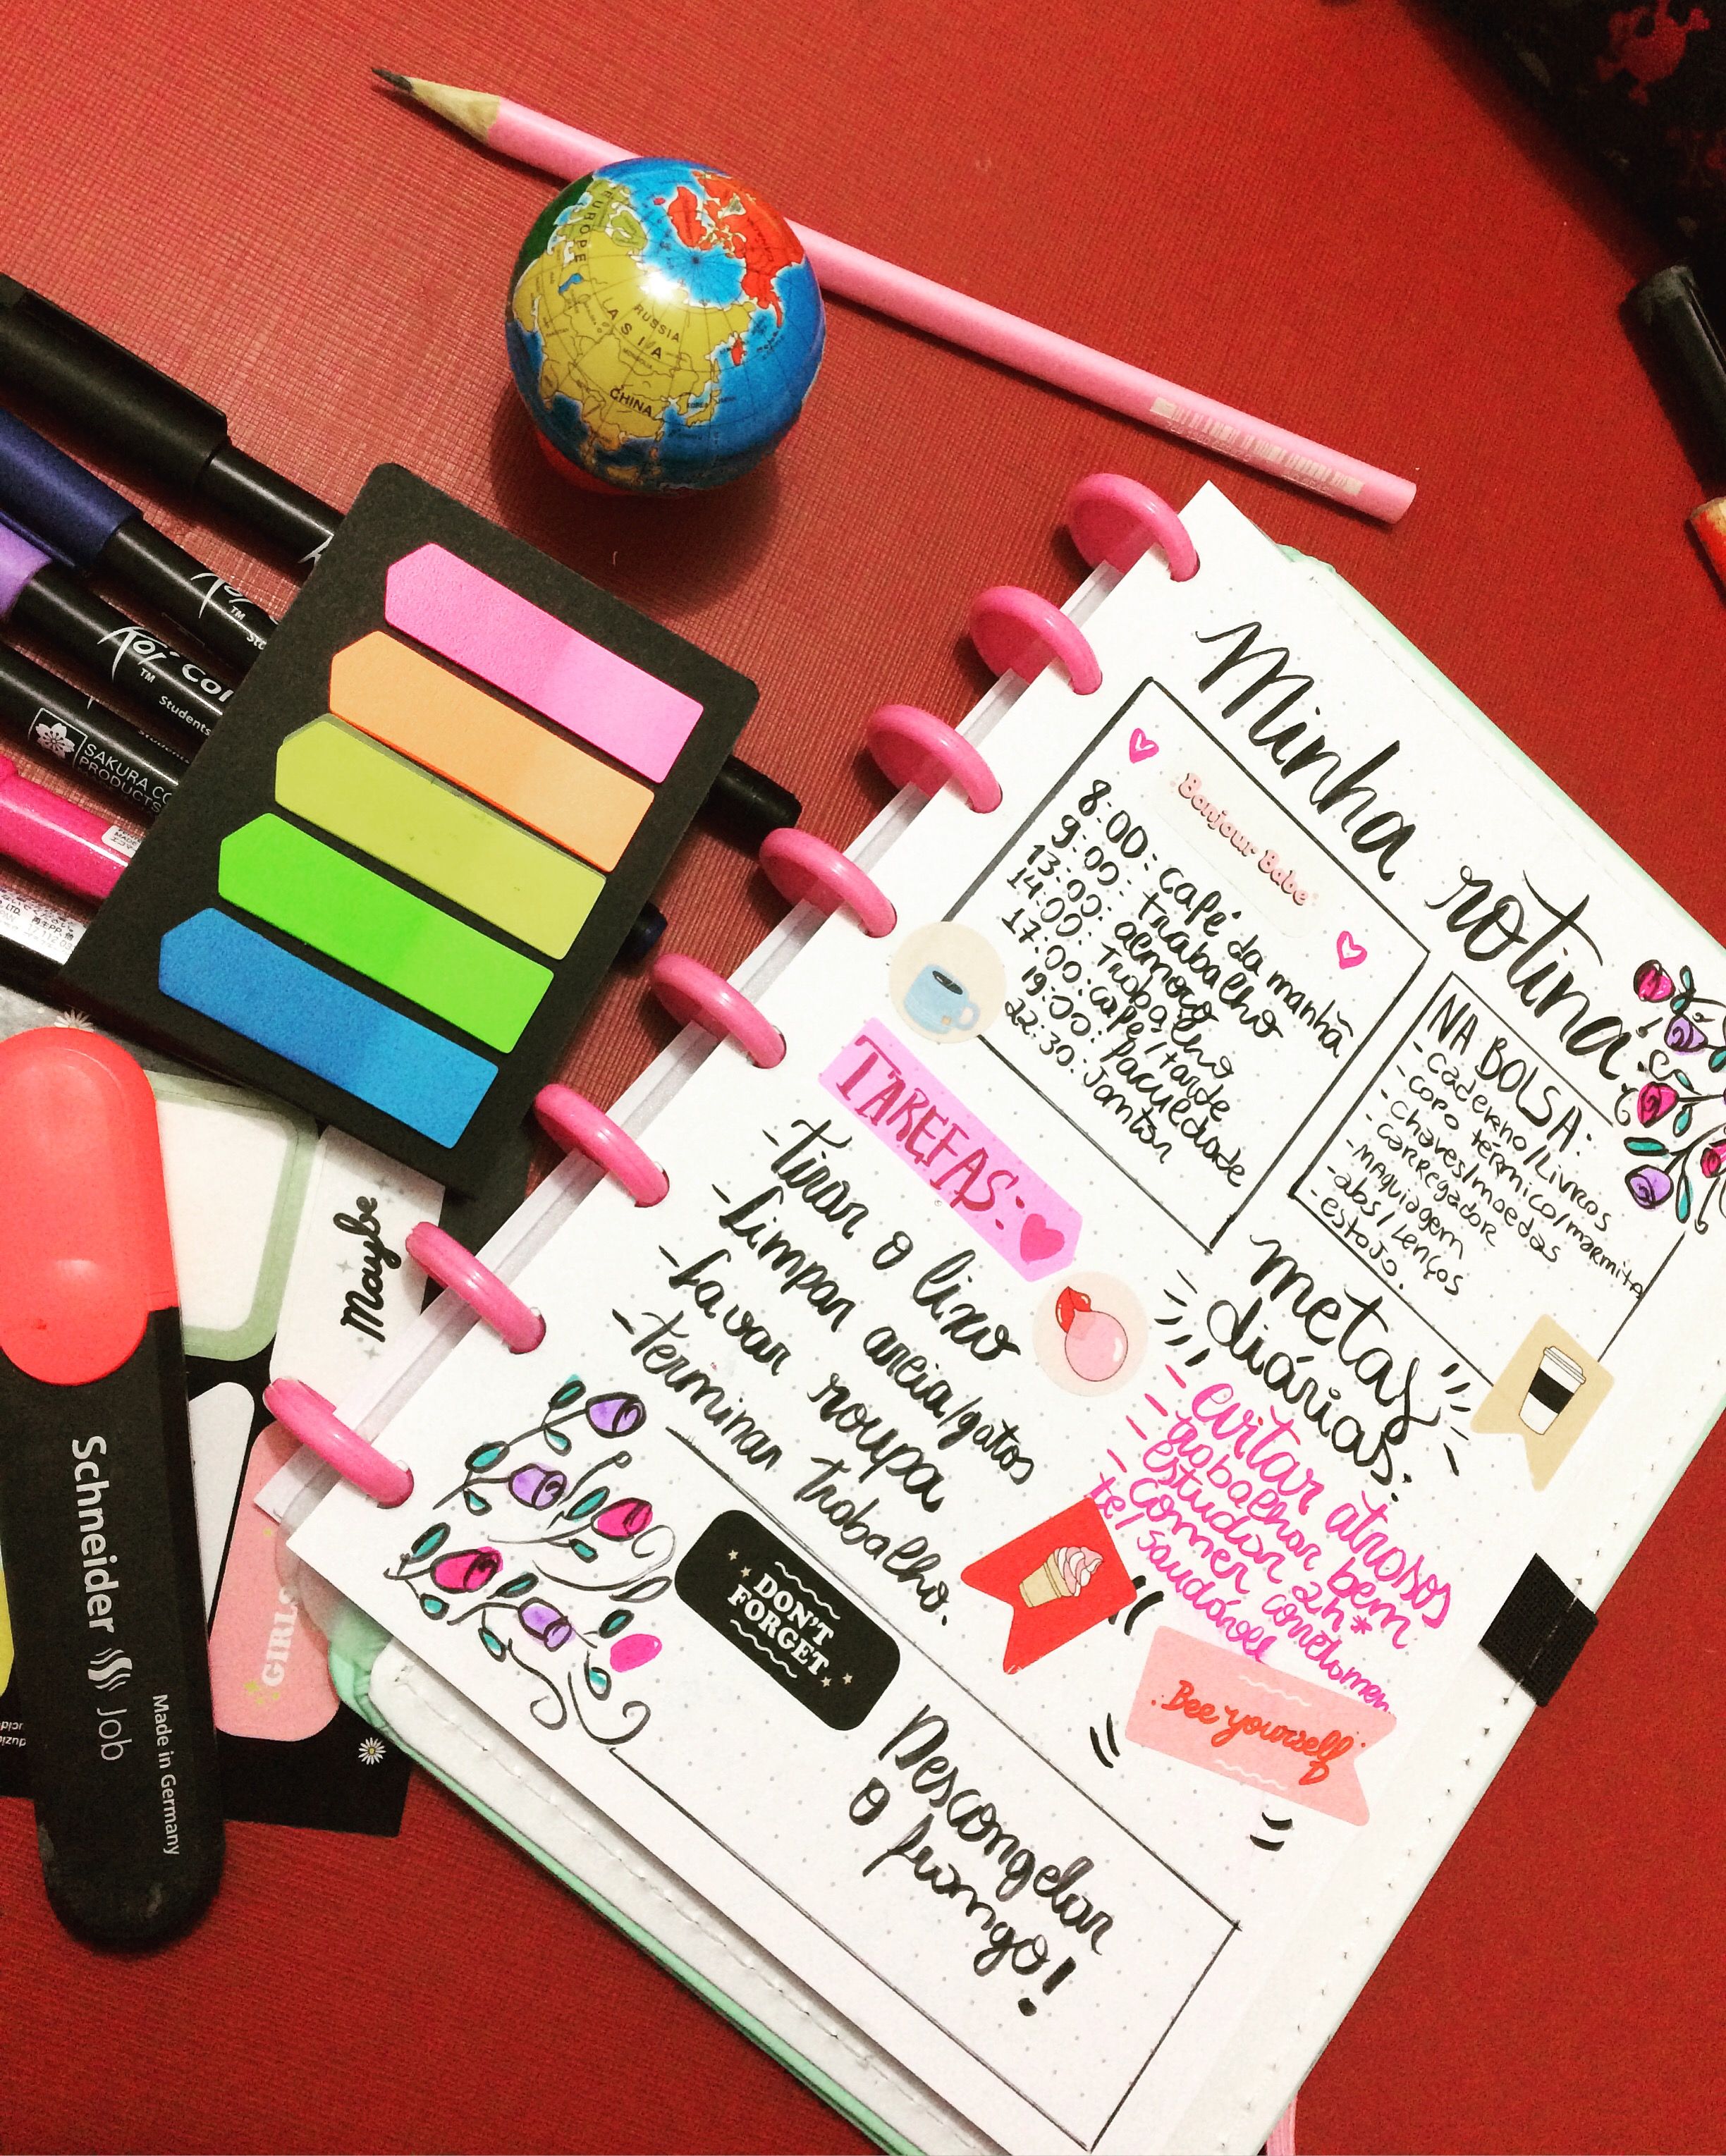 EUROPE
RUSSIA
ASIA
CHINA
Koi
TM
Koi Col
TM
Students
SAKURA CO
PRODUCTS
Maybe
GIRLS
Schneider Job
Made in Germany
Minha rotina
Bonjour Babe
8:00: café da manhã
9:00: trabalho
13:00: almoço
14:00: Trabalho
17:00: café/tarde
19:00: faculdade
22:30: Jantar
NA BOLSA:
- caderno/Livros
- copo térmico/marmita
- chaves/moedas
- carregador
- MAquiagem
- abs/Lenços
- estojo.
TAREFAS:
- Tirar o lixo
- Limpar areia/gatos
- Lavar roupa
- Terminar Trabalho.
metas
diárias:
- evitar atrasos
- trabalhar bem
- estudar 2h*
- Comer corretamen
te/saudável
Bee yourself
DON'T
FORGET
Descongelar
o frango!